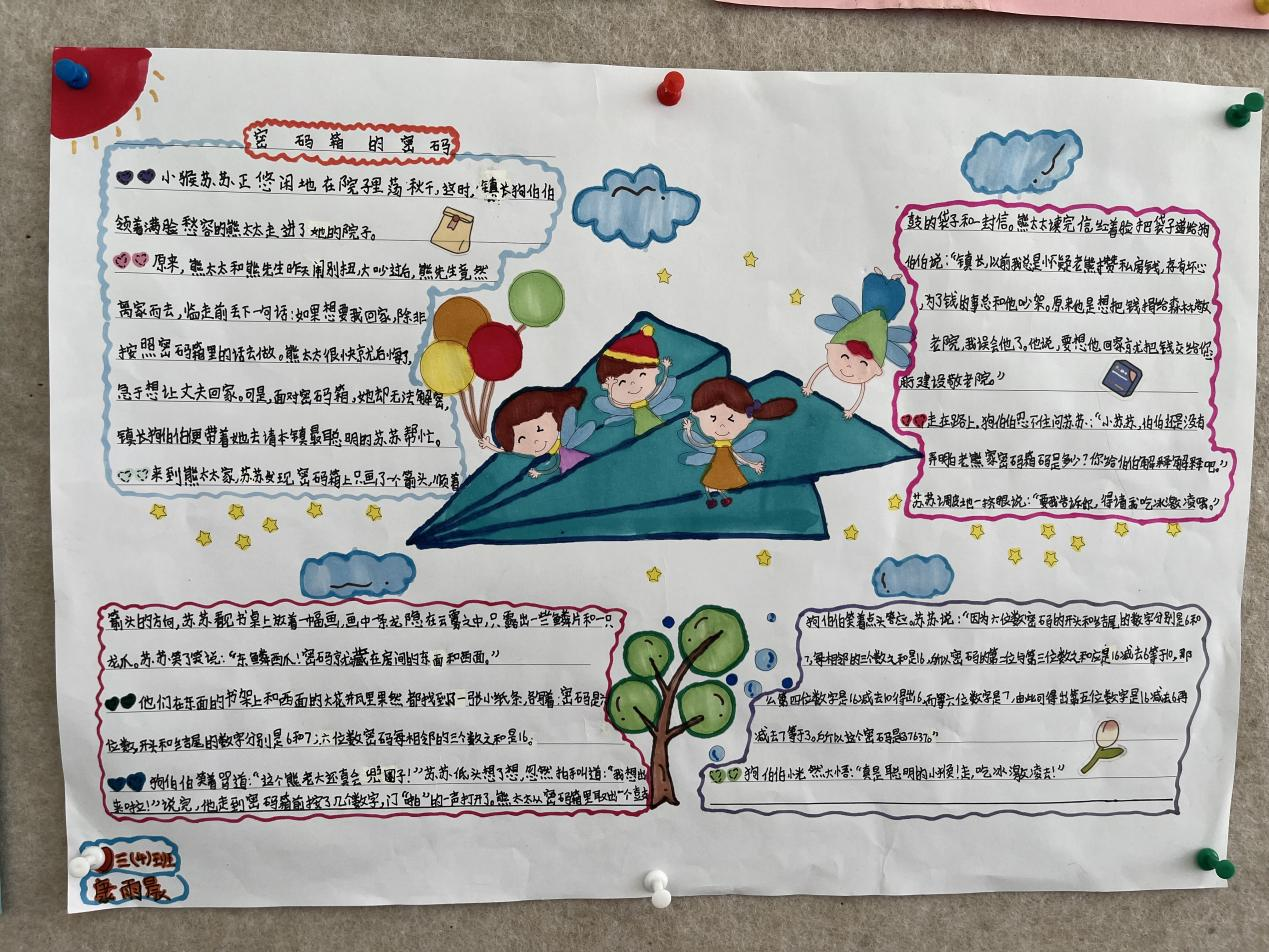 密码箱的密码
小猴苏苏正悠闲地在院子里荡秋千,这时,镇长狗伯伯
领着满脸愁容的熊太太走进了她的院子。
原来,熊太太和熊先生昨天闹别扭,大吵过后,熊先生竟然
离家而去,临走前丢下一句话:如果想要我回家,除非
按照密码箱里的话去做。熊太太很快就后悔了,
急于想让丈夫回家。可是,面对密码箱,她却无法解密,
镇长狗伯伯便带着她去请本镇最聪明的苏苏帮忙。
来到熊太太家,苏苏发现,密码箱上只画了个箭头,顺着
箭头的方向,苏苏看见书桌上放着一幅画,画中一条龙隐在云雾之中,只露出一些鳞片和一只
龙爪。苏苏笑了笑说:“东鳞西爪!密码就藏在房间的东面和西面。”
他们在东面的书架上和西面的大花瓶里果然都找到了一张小纸条,各写着:密码是六
位数,开头和结尾的数字分别是6和7;六位数密码每相邻的三个数之和是16。
狗伯伯笑着骂道:“这个熊老大还真会兜圈子!”苏苏低头想了想,忽然拍手叫道:“我想出
来啦!”说完,他走到密码箱前按了几个数字,门“啪”的一声打开了。熊太太从密码箱里取出一个鼓
鼓的袋子和一封信。熊太太读完信,红着脸把袋子递给狗
伯伯说:“镇长,以前我总是怀疑老熊攒私房钱,存有坏心
,为了钱的事总和他吵架。原来他是想把钱捐给森林敬
老院,我误会他了。他说,要想他回家就把钱交给您
建设敬老院。”
走在路上,狗伯伯忍不住问苏苏:“小苏苏,伯伯还是没有
弄明白老熊家密码箱密码是多少?你给伯伯解释解释吧。”
苏苏调皮地一挤眼说:“要我告诉您,得请我吃冰激凌哦。”
狗伯伯笑着点头答应。苏苏说:“因为六位数密码的开头和结尾的数字分别是6和
7,每相邻的三个数之和是16,所以密码的第二位与第三位数之和应是16减去6等于10,那
么第四位数字是16减去10得出6,而第六位数字是7,由此可得出第五位数字是16减去6再
减去7等于3。所以这个密码是637637。”
狗伯伯恍然大悟:“真是聪明的小猴!走,吃冰激凌去!”
三(4)班
康雨晨